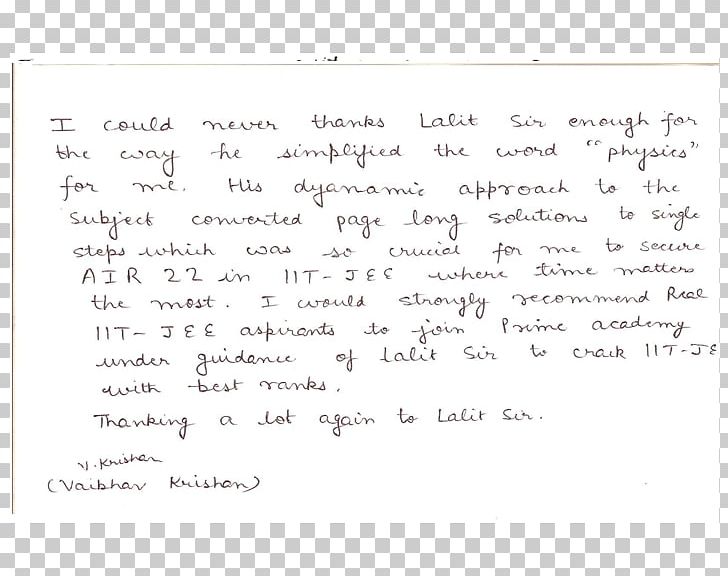 I could never thanks Lalit Sir enough for
the way he simplified the word "physics"
for me. His dyanamic approach to the
subject converted page long solutions to single
steps which was so crucial for me to secure
AIR 22 in IIT-JEE where time matters
the most. I would strongly recommend Real
IIT-JEE aspirants to join Prime academy
under guidance of Lalit Sir to crack IIT-JE
with best ranks.
Thanking a lot again to Lalit Sir.
V. Krishan
(Vaibhav Krishan)